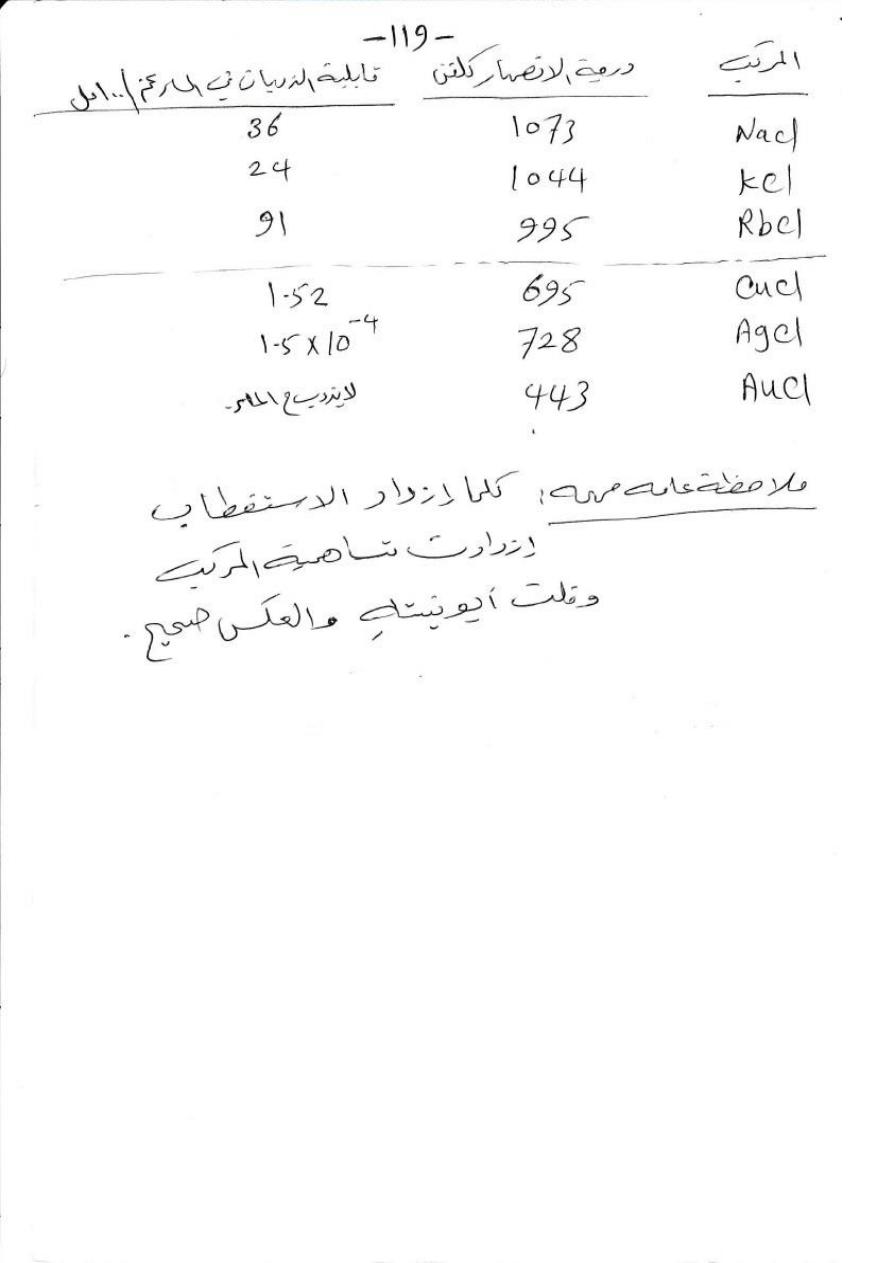 -119-
المركب درجة الانصهار كلفن قابلية الذوبان في الماء غم/100مل
NaCl 1073 36
KCl 1044 24
RbCl 995 91
CuCl 695 1.52
AgCl 728 1.5x10⁻⁴
AuCl 443 لا يذوب في الماء.
ملاحظة عامه مهمه: كلما إزداد الاستقطاب
إزدادت تساهمية المركب
وقلت أيونيته والعكس صحيح.